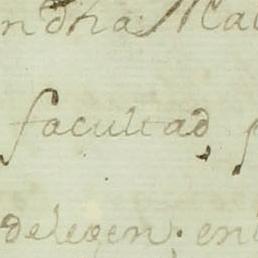 n dha. Ma
facultad,
delegen. en